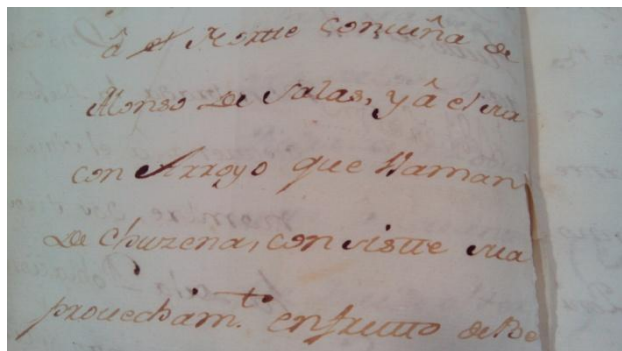 â el Norte con viña de
Alonso De Salas, y â el sur
con Arroyo que llaman
De Chuzena, consistte su a
provecham.to en frutto de Be